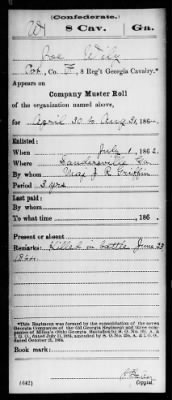 (Confederate.)
W 8 Cav. Ga.
Wilk
Co. F, 8 Reg't Georgia Cavalry.*
Appears on
Company Muster Roll
of the organization named above,
for April 30 to Aug 31, 186
Enlisted:
When July 1, 1862.
Where Sandersville Ga
By whom Maj J. R. Griffin
Period 3 yrs
Last paid:
By whom
To what time , 186 .
Present or absent
Remarks: Killed in battle June 23
1864
*This Regiment was formed by the consolidation of the seven
Georgia Companies of the 62d Georgia Regiment and three
Book mark:
(642) Copyist.